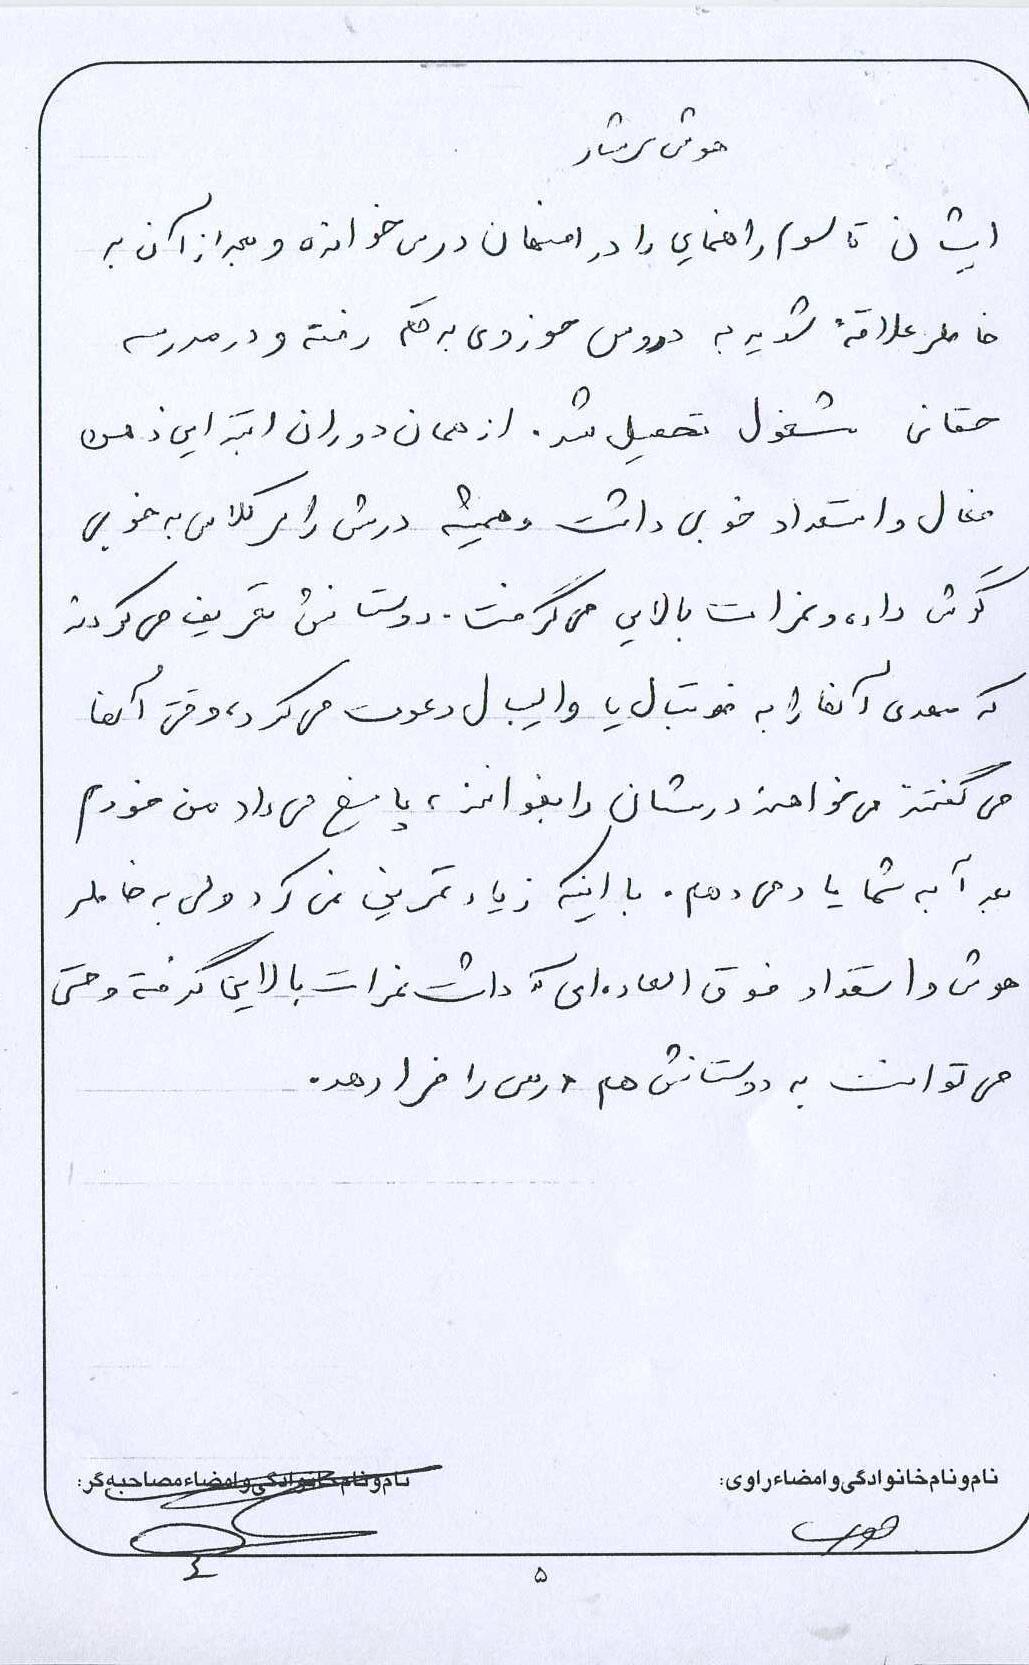 هوش سرشار
ایشان تا سوم راهنمایی را در اصفهان درس خوانده و بعد از آن به
خاطر علاقهٔ شدید به دروس حوزوی به قم رفته و در مدرسه
حقانی مشغول تحصیل شد. از همان دوران ابتدایی ذهن
فعال و استعداد خوبی داشت و همیشه درسش را سر کلاس به خوبی
گوش داده و نمرات بالایی می گرفت. دوستانش تعریف می کردند
که مهدی آنها را به فوتبال یا والیبال دعوت می کرد، وقتی آنها
می گفتند می خواهند درسشان را بخوانند، پاسخ می داد من خودم
بعداً به شما یاد می دهم. با اینکه زیاد تمرین نمی کرد ولی به خاطر
هوش و استعداد فوق العاده ای که داشت نمرات بالایی گرفته و حتی
می توانست به دوستانش هم درس را فرا دهد.
نام و نام خانوادگی و امضاء راوی:
نام و نام خانوادگی و امضاء مصاحبه گر:
۵